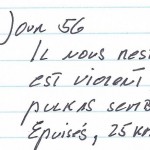 Jour 56
Il nous rest
est violent
pulkas semb
Epuisés, 25 k